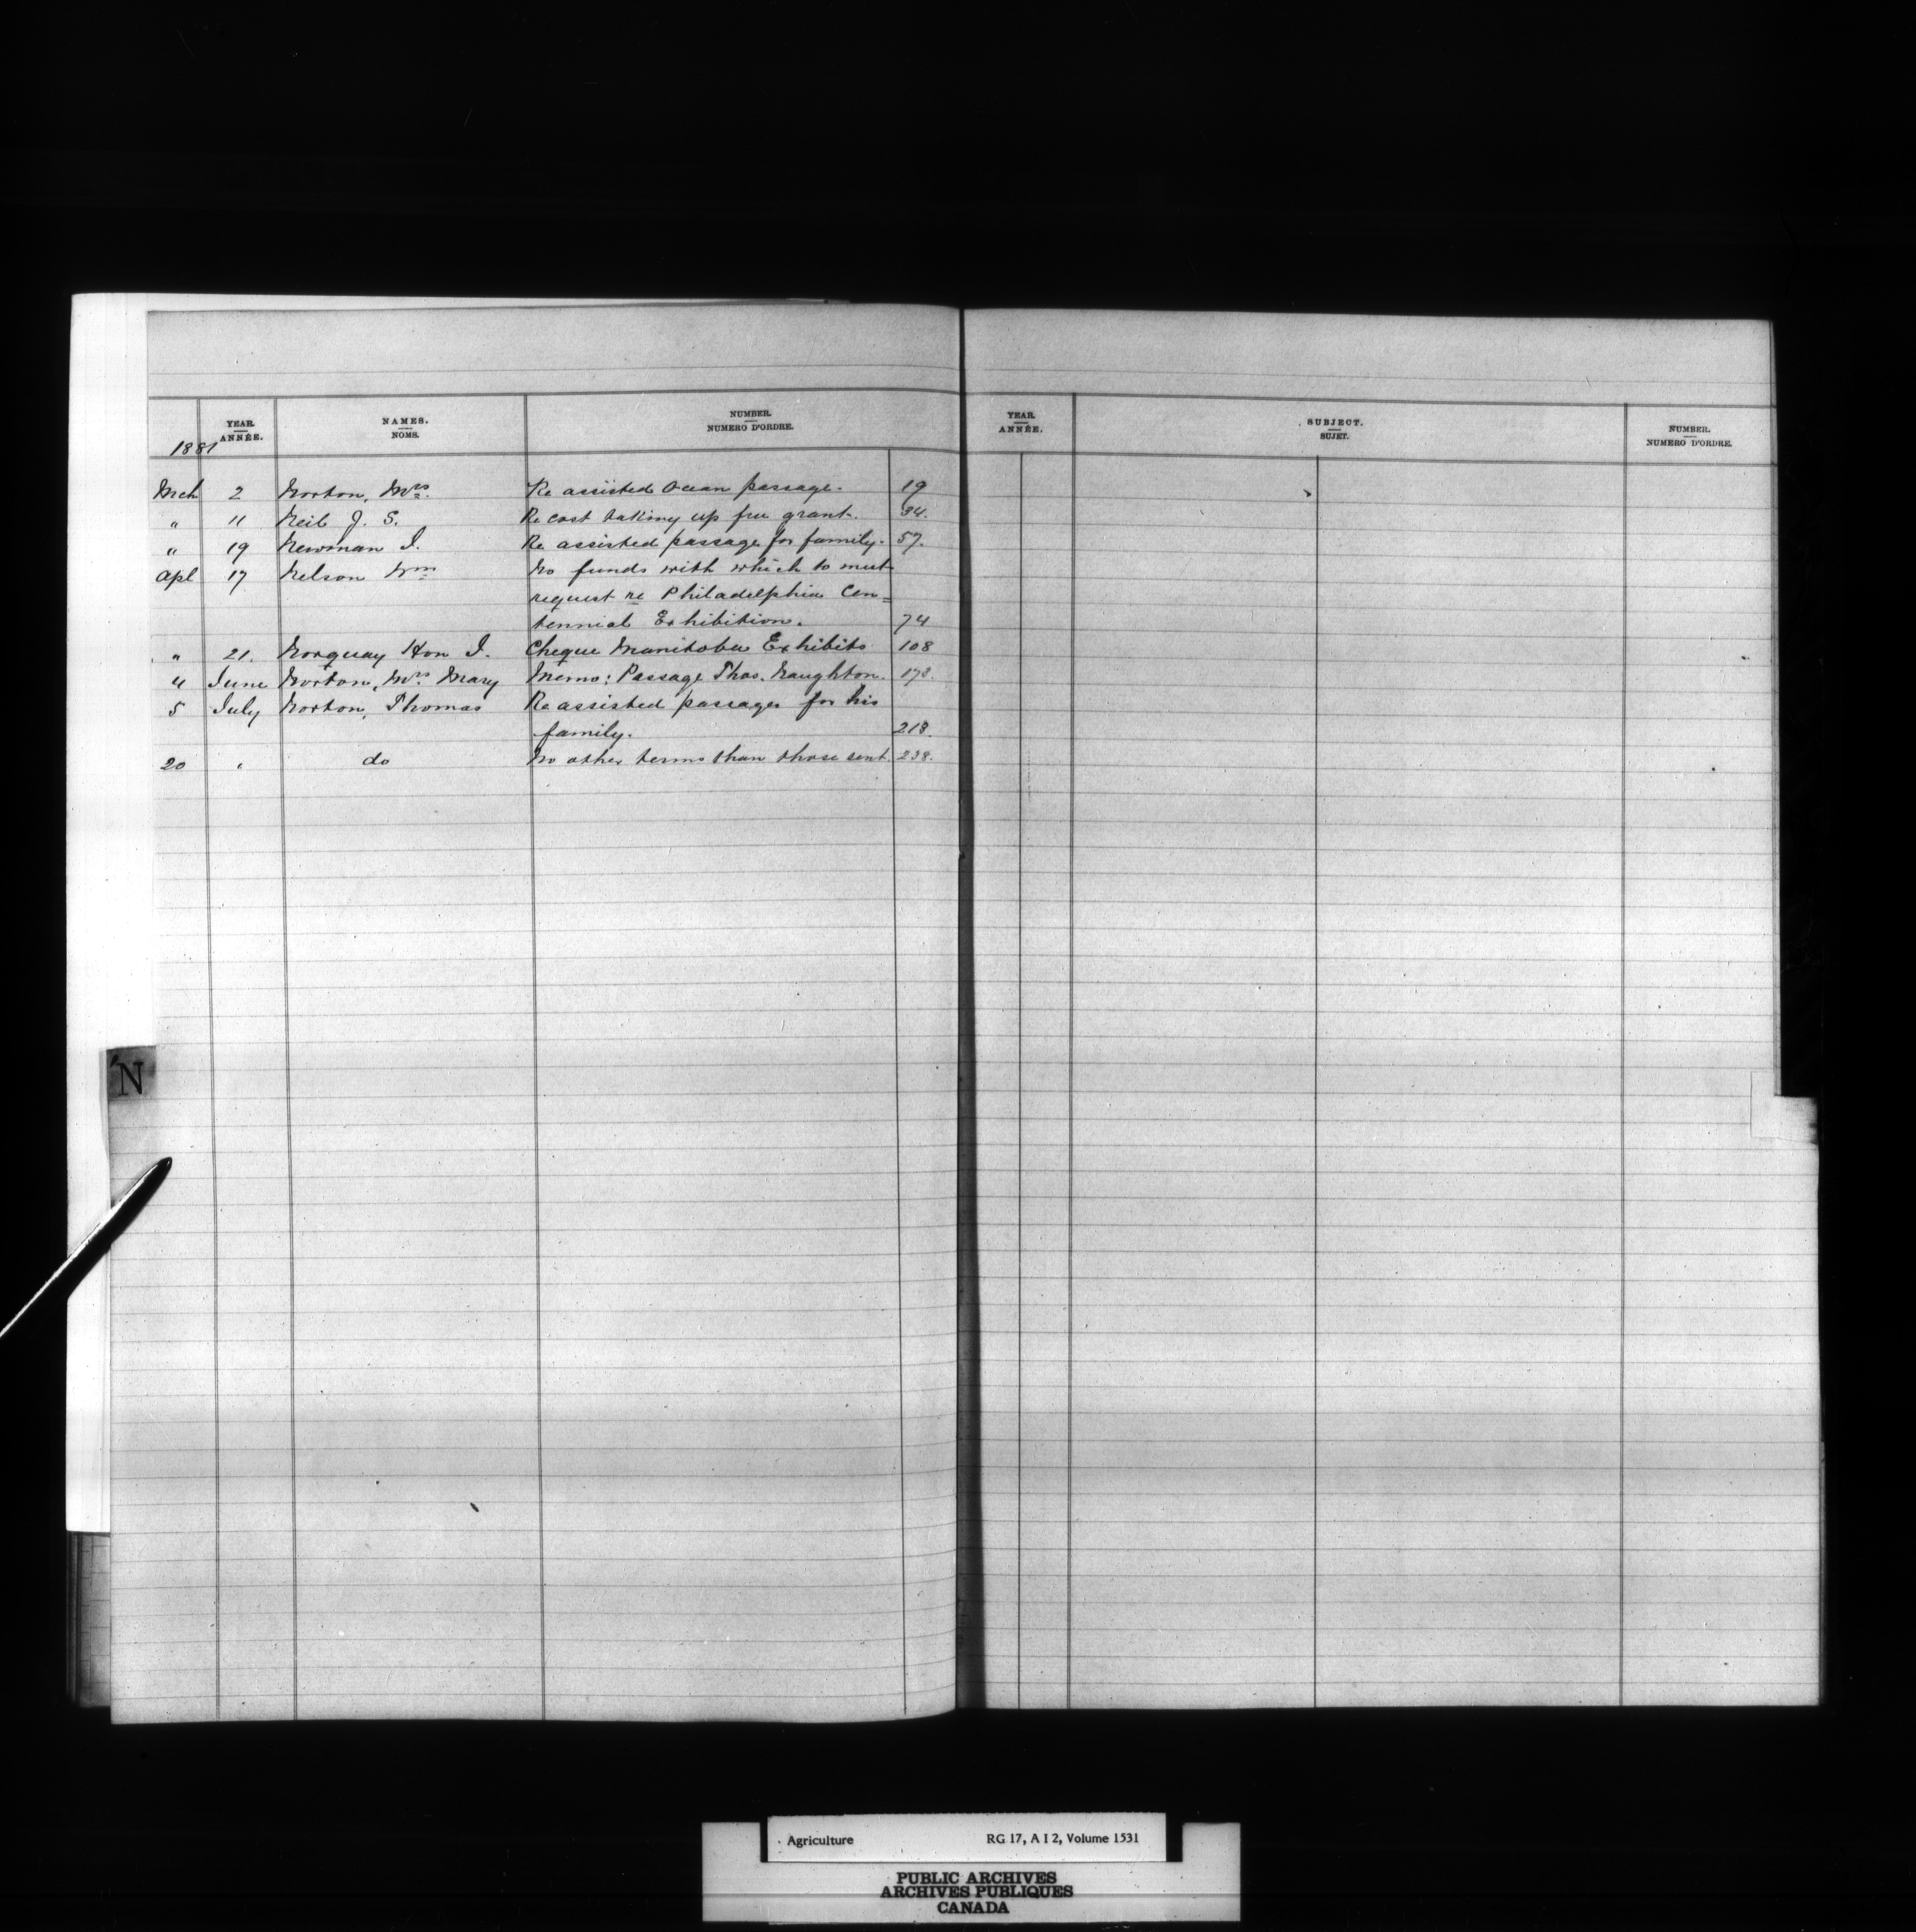 YEAR. NAMES. NUMBER.
ANNÉE. NOMS. NUMERO D'ORDRE.
1881
Mch 2 Norton, Mrs. Re assisted Ocean passage. 19
" 11 Neil J. S. Re cost taking up free grant. 34.
" 19 Newman I. Re assisted passage for family. 57.
Apl 17 Nelson Wm No funds with which to meet
request re Philadelphia Cen=
tennial Exhibition. 74
" 21. Norquay Hon J. Cheque Manitoba Exhibits 108
4 June Norton, Mrs. Mary Memo: Passage Thos. Naughton. 173.
5 July Norton, Thomas Re assisted passages for his
family. 218.
20 " do No other terms than those sent. 238.
N
YEAR. SUBJECT. NUMBER.
ANNÉE. SUJET. NUMERO D'ORDRE.
Agriculture RG 17, A I 2, Volume 1531
PUBLIC ARCHIVES
ARCHIVES PUBLIQUES
CANADA